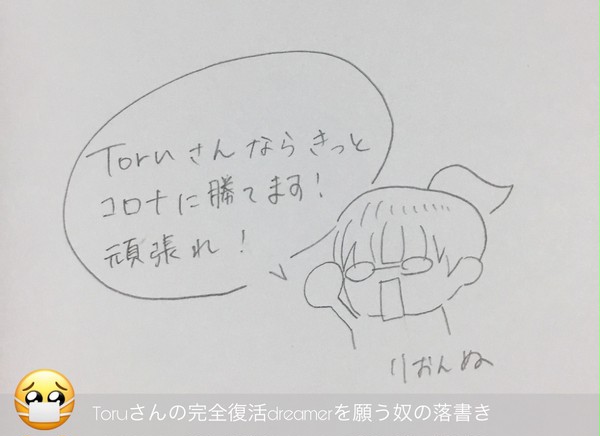 Toruさんならきっと
コロナに勝てます!
頑張れ!
りおんぬ
Toruさんの完全復活dreamerを願う奴の落書き